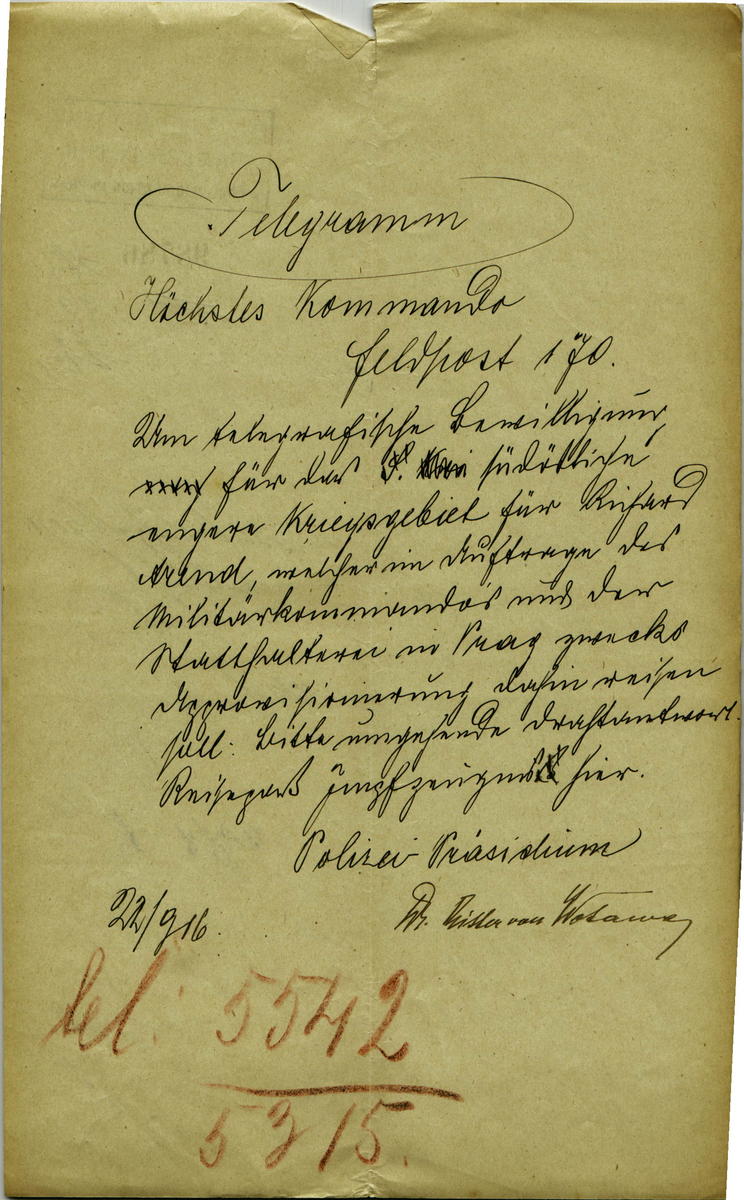 Telegramm
Höchstes Kommando
Feldpost 170.
Um telegrafische Bewilligung
für das südöstliche
engere Kriegsgebiet für Richard
Arend, welcher im Auftrage des
Militärkommandos und der
Statthalterei in Prag zwecks
Approvisionierung dahin reisen
soll. Bitte umgehende Drahtantwort.
Reisepaß Impfzeugnis hier.
Polizei Präsidium
22/9 16.
Dr. Ritter von Wotawa
tel: 5542
5315.